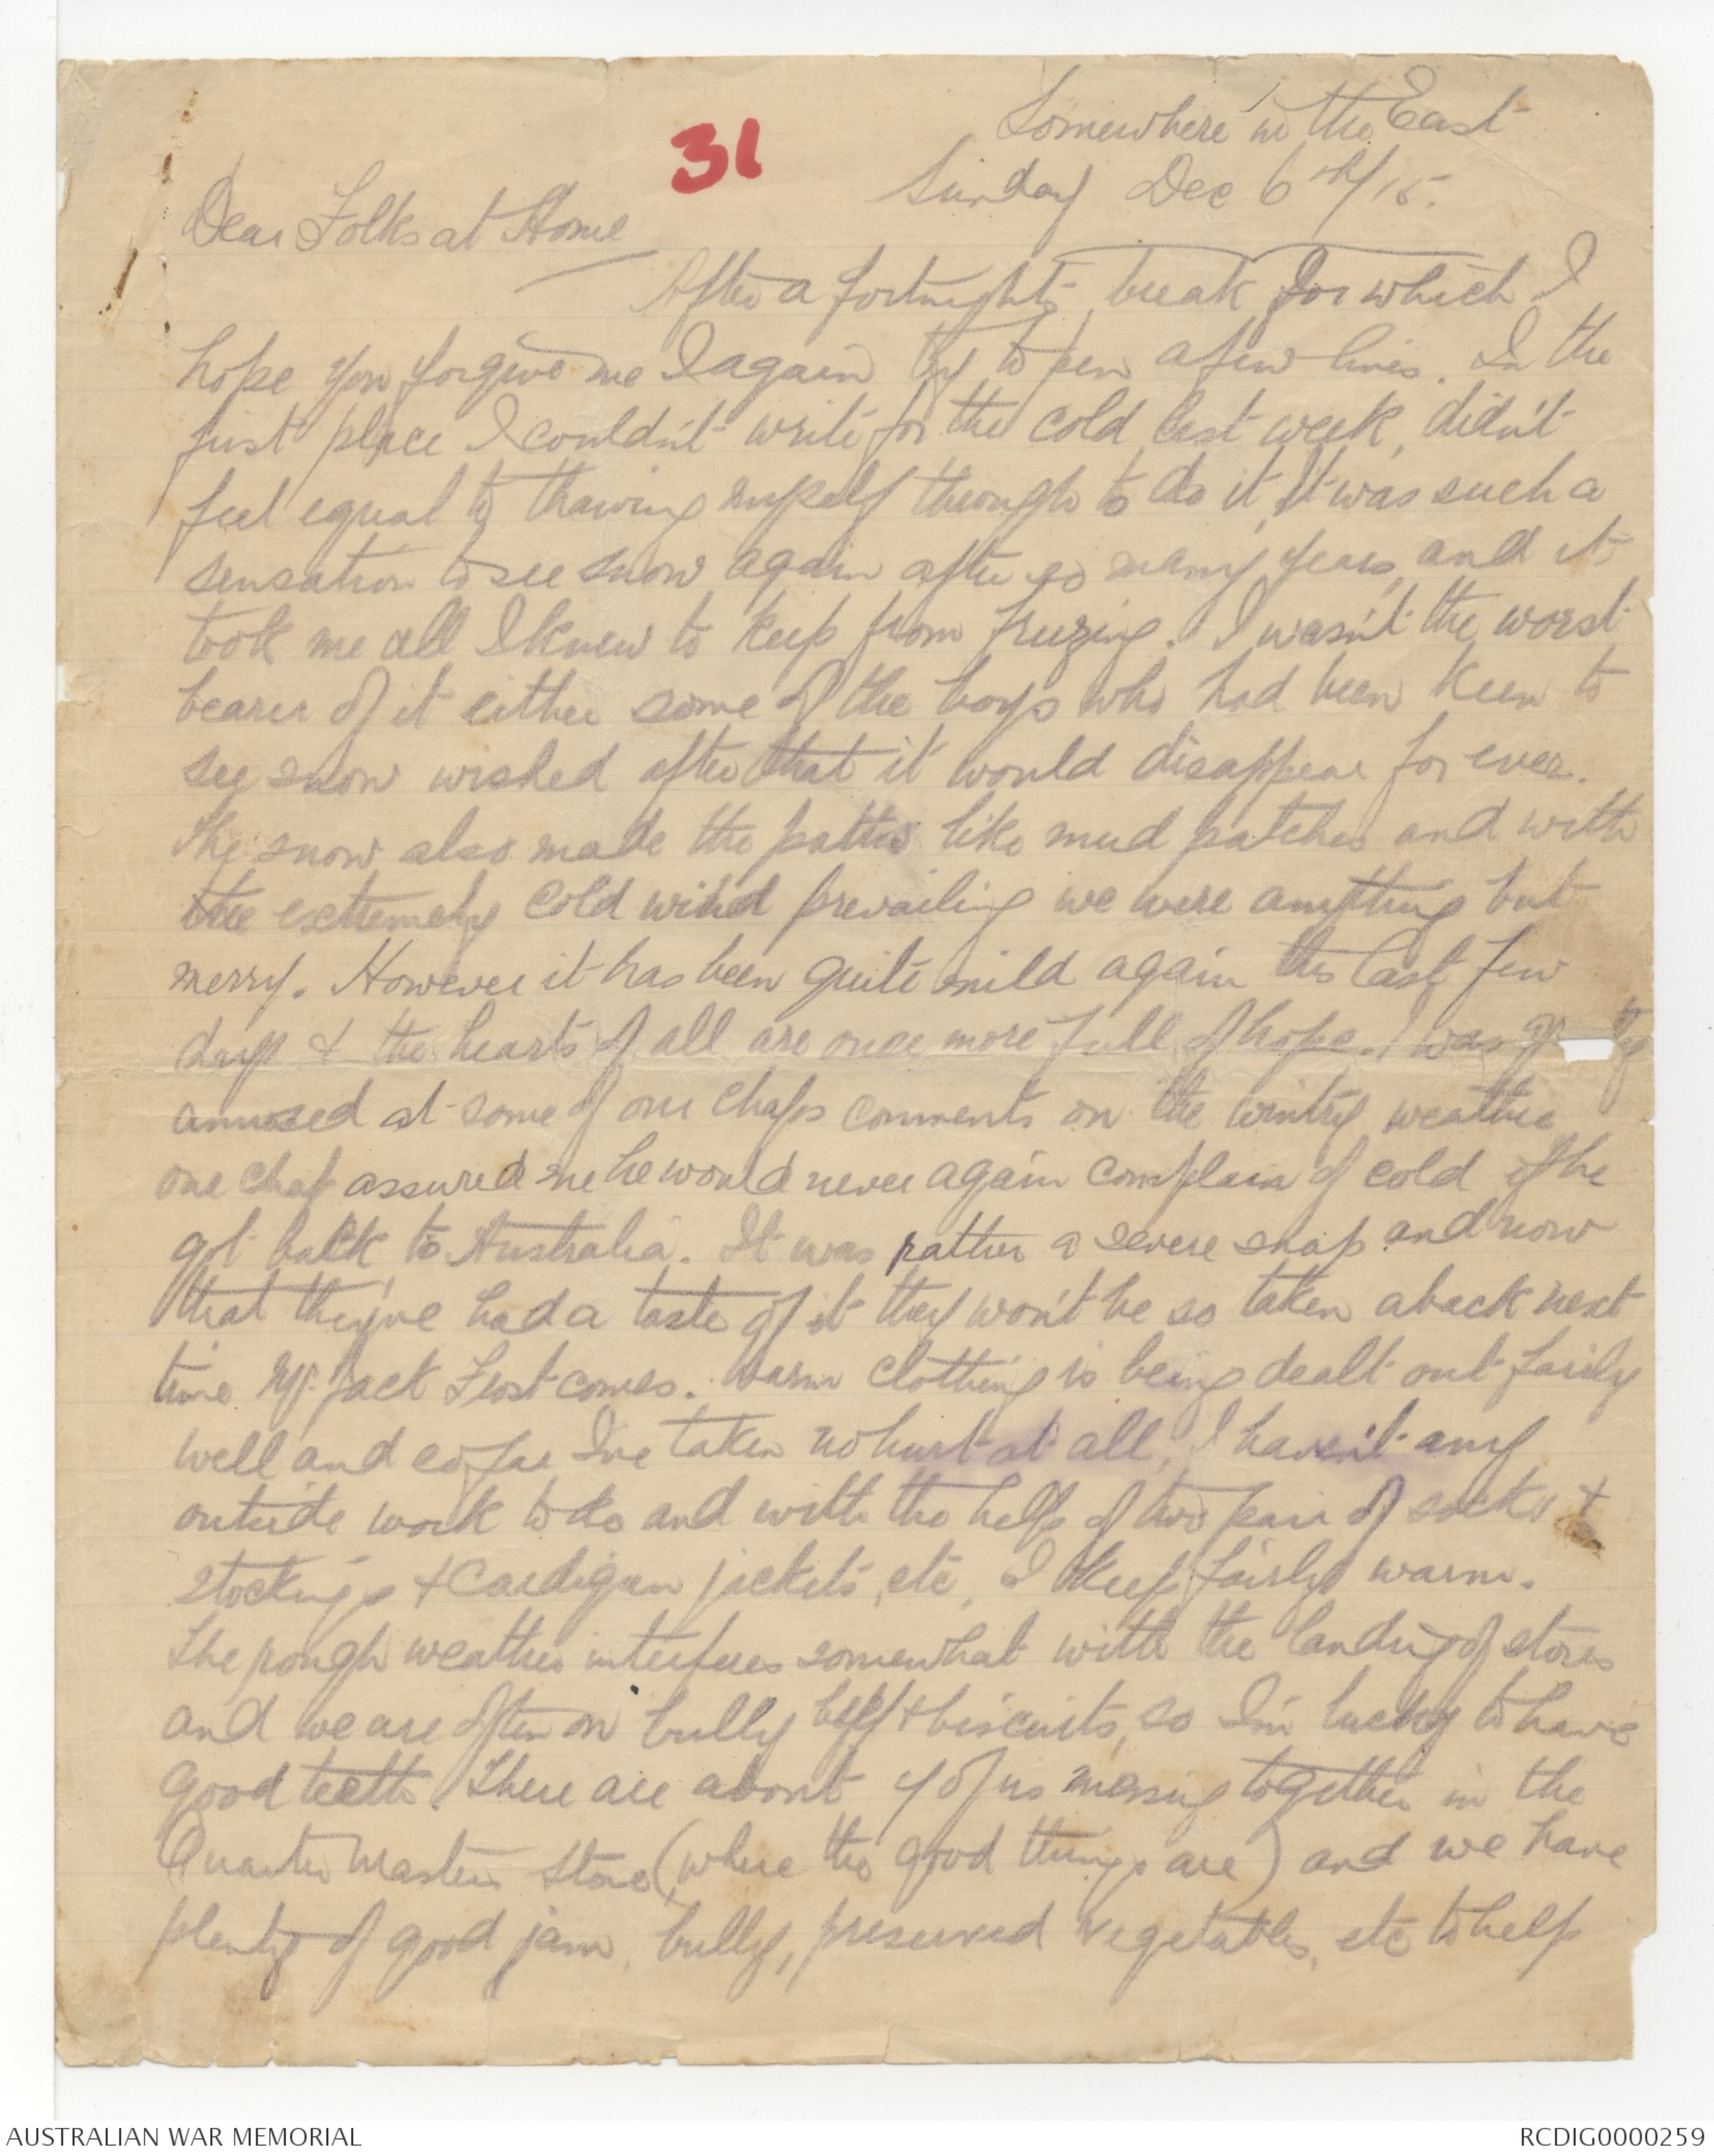 Somewhere in the East
31
Sunday Dec 6th/15.
Dear Folks at Home
After a fortnights break for which I
hope you forgive me I again try to pen a few lines. In the
first place I couldn't write for the cold last week, didn't
feel equal to thawing myself through to do it, It was such a
sensation to see snow again after so many years, and it
took me all I knew to keep from freezing. I wasn't the worst
bearer of it either some of the boys who had been keen to
see snow wished after that it would disappear for ever.
The snow also made the paths like mud patches and with
the extremely cold wind prevailing we were anything but
merry. However it has been quite mild again this last few
days & the hearts of all are once more full of hope. I was
amused at some of our chaps comments on the wintry weather
one chap assured me he would never again complain of cold if he
got back to Australia. It was rather a severe snap and now
that they've had a taste of it they won't be so taken aback next
time Mr Jack Frost comes. Warm clothing is being dealt out fairly
well and so far I've taken no hurt at all, I haven't any
outside work to do and with the help of two pair of socks &
stockings & Cardigan jackets, etc, I keep fairly warm.
The rough weather interferes somewhat with the landing of stores
and we are often on bully beef & biscuits, so I'm lucky to have
good teeth. There are about of us messing together in the
Quarter Masters Store (where the good things are) and we have
plenty of good jam, bully, preserved vegetables, etc to help
AUSTRALIAN WAR MEMORIAL
RCDIG0000259